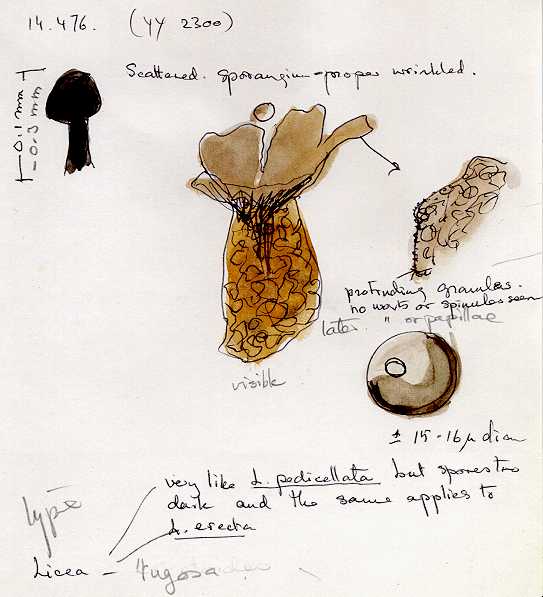 14.476. (YY 2300)
Scattered. Sporangium-proper wrinkled.
0.1 mm
0.3 mm
protruding granules.
no warts or spinules seen
later " or papillae
visible
± 15-16 μ diam
very like L. pedicellata but spores too
dark and the same applies to
L. erecta
type
Licea - rugosa